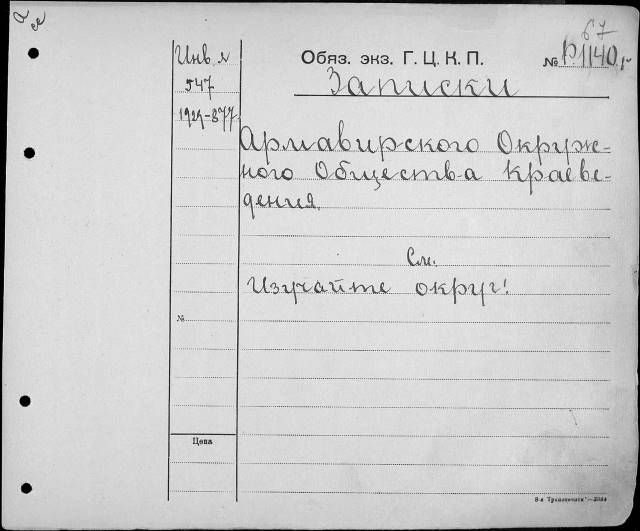 67
Инв №
547
1929-877
Обяз. экз. Г. Ц. К. П.
№ Р1140
Записки
Армавирского Окруж-
ного Общества Краеве-
дения.
См.
Изучайте округ!
№
Цена